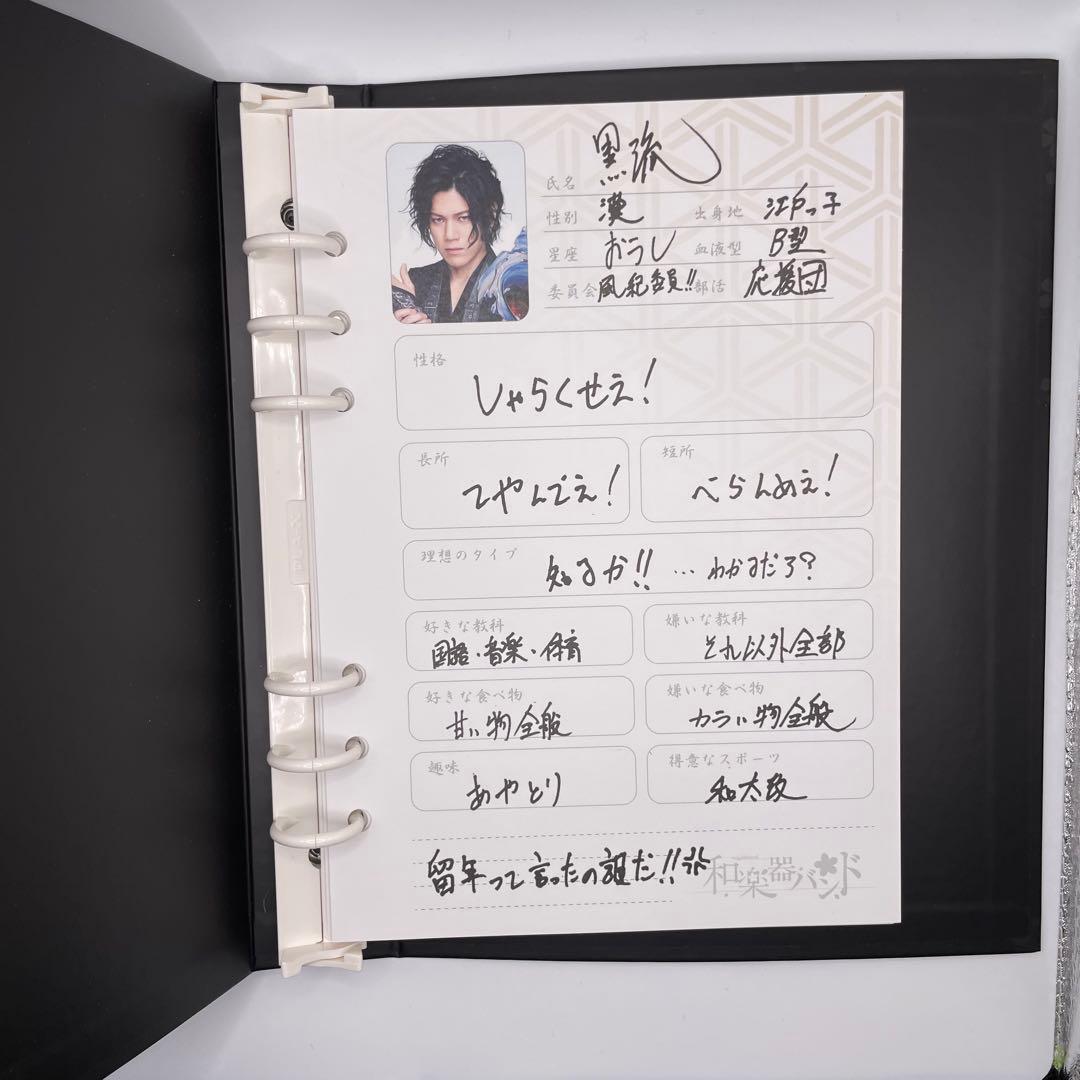 氏名 黒流
性別 漢 出身地 江戸っ子
星座 おうし 血液型 B型
委員会 風紀委員!! 部活 応援団
性格
しゃらくせえ!
長所 短所
てやんでえ! べらんめえ!
理想のタイプ
知るか!! …わかるだろ?
好きな教科 嫌いな教科
国語・音楽・体育 それ以外全部
好きな食べ物 嫌いな食べ物
甘い物全般 カラい物全般
趣味 得意なスポーツ
あやとり 和太鼓
留年って言ったの誰だ!!
和楽器バンド